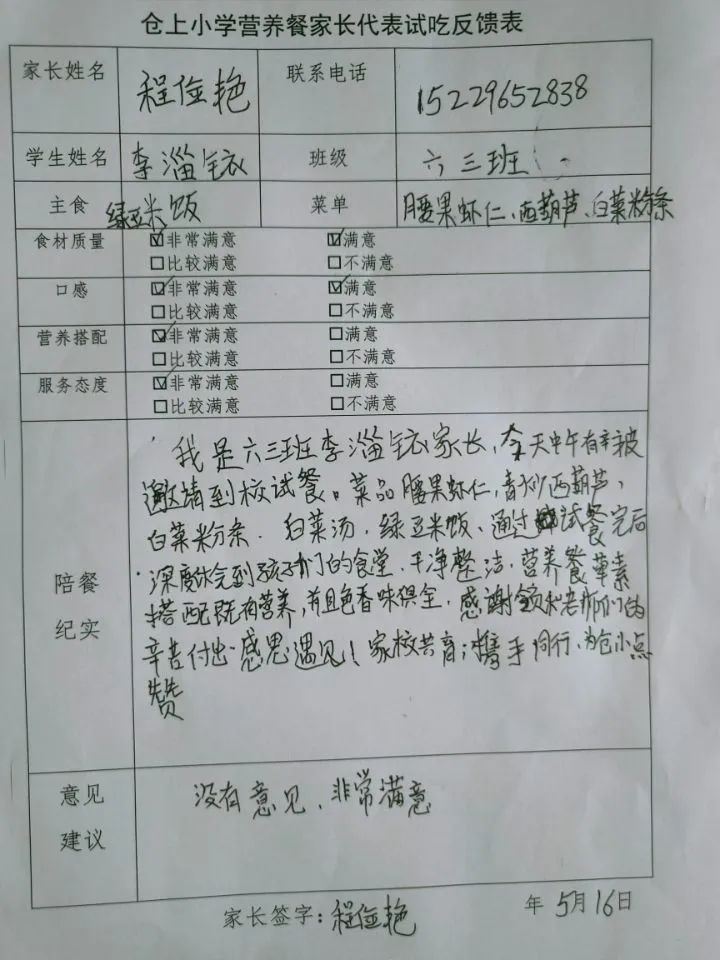 仓上小学营养餐家长代表试吃反馈表
家长姓名 程俭艳 联系电话 15229652838
学生姓名 李淄铱 班级 六三班
主食 绿豆米饭 菜单 腰果虾仁、西葫芦、白菜粉条
食材质量 ☑非常满意 ☑满意
☐比较满意 ☐不满意
口感 ☑非常满意 ☑满意
☐比较满意 ☐不满意
营养搭配 ☑非常满意 ☐满意
☐比较满意 ☐不满意
服务态度 ☑非常满意 ☐满意
☐比较满意 ☐不满意
陪餐纪实
我是六三班李淄铱家长,今天中午有幸被
邀请到校试餐。菜品腰果虾仁,青炒西葫芦,
白菜粉条.白菜汤.绿豆米饭、通过试餐完后
深度体会到孩子们的食堂.干净整洁,营养餐荤素
搭配既有营养,并且色香味俱全.感谢领和老师们的
辛苦付出感恩遇见!家校共育;携手同行,为仓小点
赞
意见建议
没有意见、非常满意
家长签字:程俭艳 年5月16日